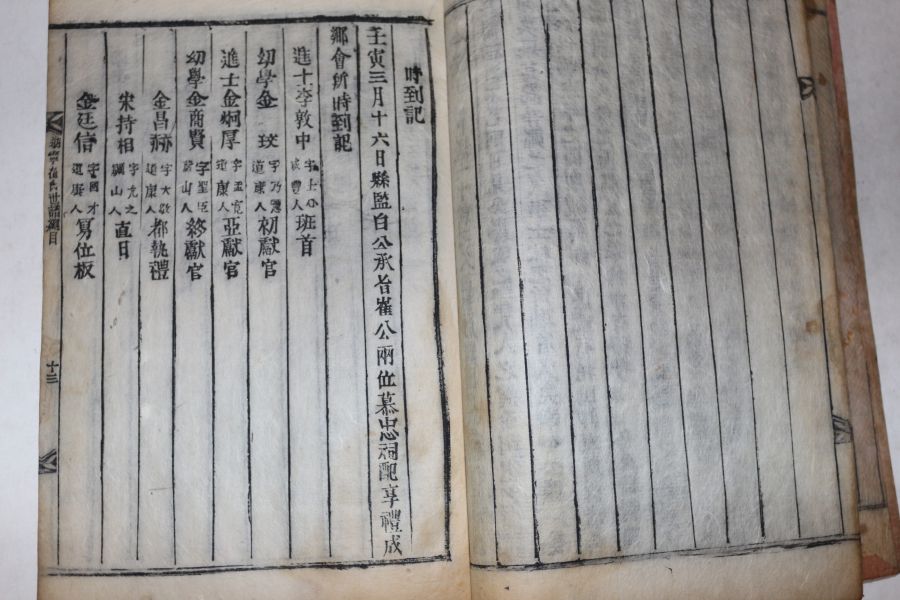 時到記
壬寅三月十六日縣監白公承旨崔公兩位慕忠祠配享禮成
鄕會所時到記
進士李敦中 人 班首
幼學金 玟 道康人 初獻官
進士金炯厚 道康人 亞獻官
幼學金商賢 字聖臣 人 終獻官
金昌 字大 道康人 都執禮
宋持相 字允之 礪山人 直日
金廷信 字國才 道康人 寫位板
氏世譜
十三